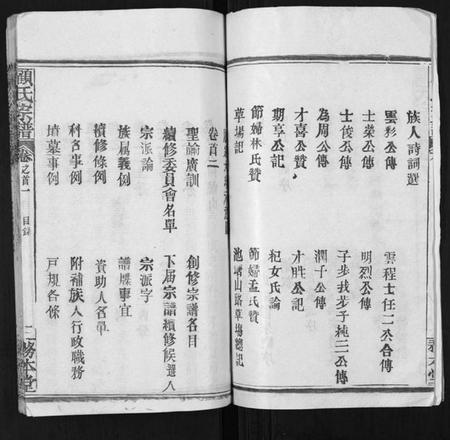 族人詩詞選
雲彩公傳 雲程士任二公合傳
士榮公傳 明烈公傳
士俊公傳 子步扶步子純三公傳
為周公傳 潤于公傳
才喜公贊 才勝公記
期享公記 杞女氏論
節婦林氏贊 節婦孟氏贊
草場記 池塘山路草場總記
卷首二
聖諭廣訓 創修宗譜名目
續修委員會名單 下屆宗譜續修候選人
宗派論 宗派字
族屬義例 譜牒事宜
續修條例 資助人名單
科名事例 附補族人行政職務
墳墓事例 戸規各條
顧氏宗譜 卷之首一 目錄 二 務本堂